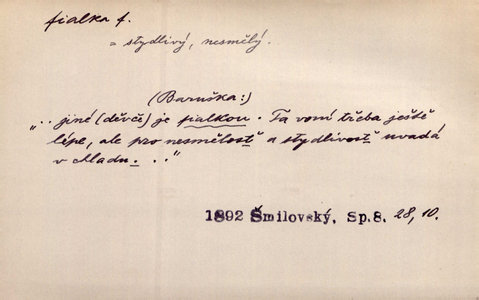 fialka f.
= stydlivý, nesmělý.
(Baruška:)
„.. jiné (děvče) je fialkou. Ta voní třeba ještě
lépe, ale pro nesmělost a stydlivost uvadá
v chladu. . ."
1892 Šmilovský, Sp.8. 28, 10.